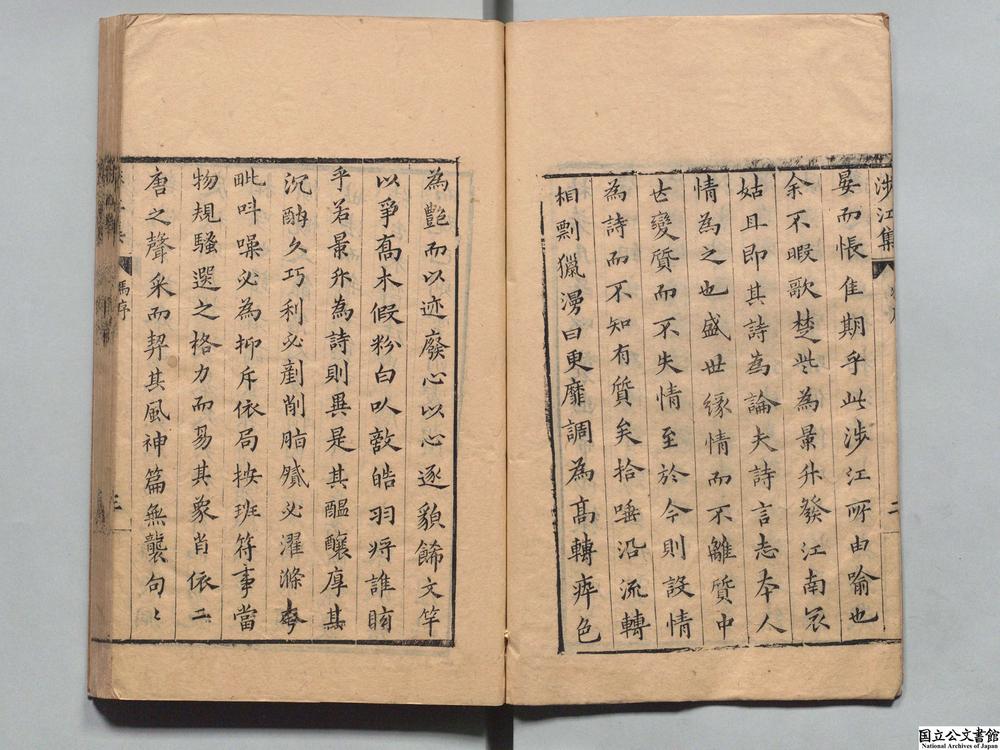 涉江集
晏而悵隹期乎此涉江所由喻也
余不暇歌楚些為景升發江南哀
姑且即其詩為論夫詩言志本人
情為之也盛世緣情而不離質中
古變質而不失情至於今則設情
為詩而不知有質矣拾唾沿流轉
相剽獵溺曰更靡調為高轉瘁色
為艷而以迹廢心以心逐貌餙文竿
以爭喬木假粉白以敚皓羽將誰眩
乎若景升為詩則異是其醞釀厚其
沉酣久巧利必剷削脂膩必濯滌夸
毗叫噪必為抑斥依局按班符事當
物規騷選之格力而易其象肖依二
唐之聲采而契其風神篇無襲句〻
馬序
三
国立公文書館
National Archives of Japan